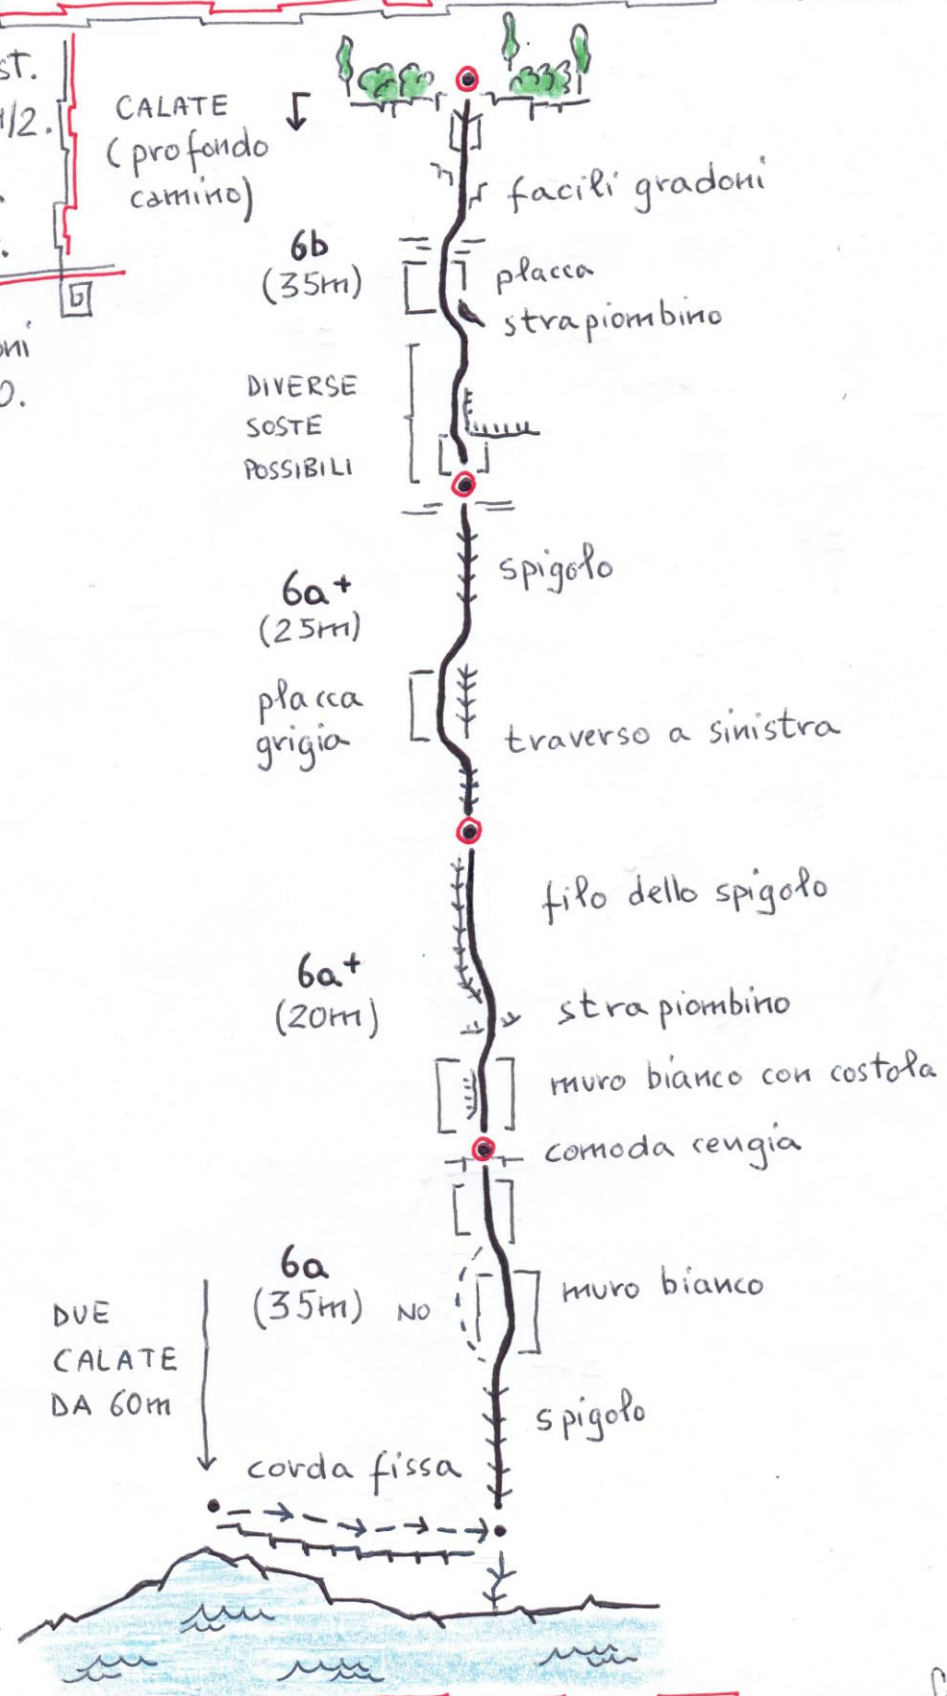 st.
1/2.
CALATE
(profondo
camino)
facili gradoni
6b
(35m)
placca
strapiombino
oni
O.
DIVERSE
SOSTE
POSSIBILI
spigolo
6a+
(25m)
placca
grigia
traverso a sinistra
filo dello spigolo
6a+
(20m)
strapiombino
muro bianco con costola
comoda cengia
6a
(35m)
NO
muro bianco
DUE
CALATE
DA 60m
spigolo
corda fissa